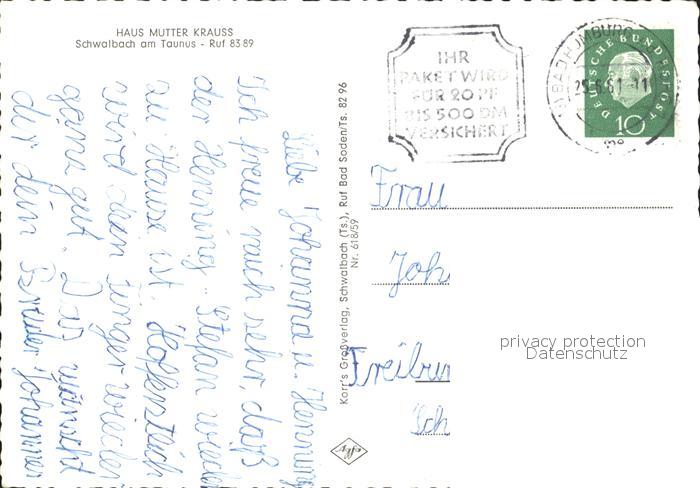 HAUS MUTTER KRAUSS
Schwalbach am Taunus - Ruf 8389
Liebe Johanna u. Henning
Ich freue mich sehr, daß
der Henning-Stefan wieder
zu Hause ist. Hoffentlich
wird dein Finger wieder
ganz gut. Das wünscht
dir dein Bruder Johannes
Korr's Großverlag, Schwalbach (Ts.), Ruf Bad Soden/Ts. 82 96
Nr. 618/59
IHR
PAKET WIRD
FÜR 20 PF
BIS 500 DM
VERSICHERT
BAD HOMBURG
DEUTSCHE BUNDESPOST
10
Frau
Joh
Freibur
Sch
privacy protection
Datenschutz